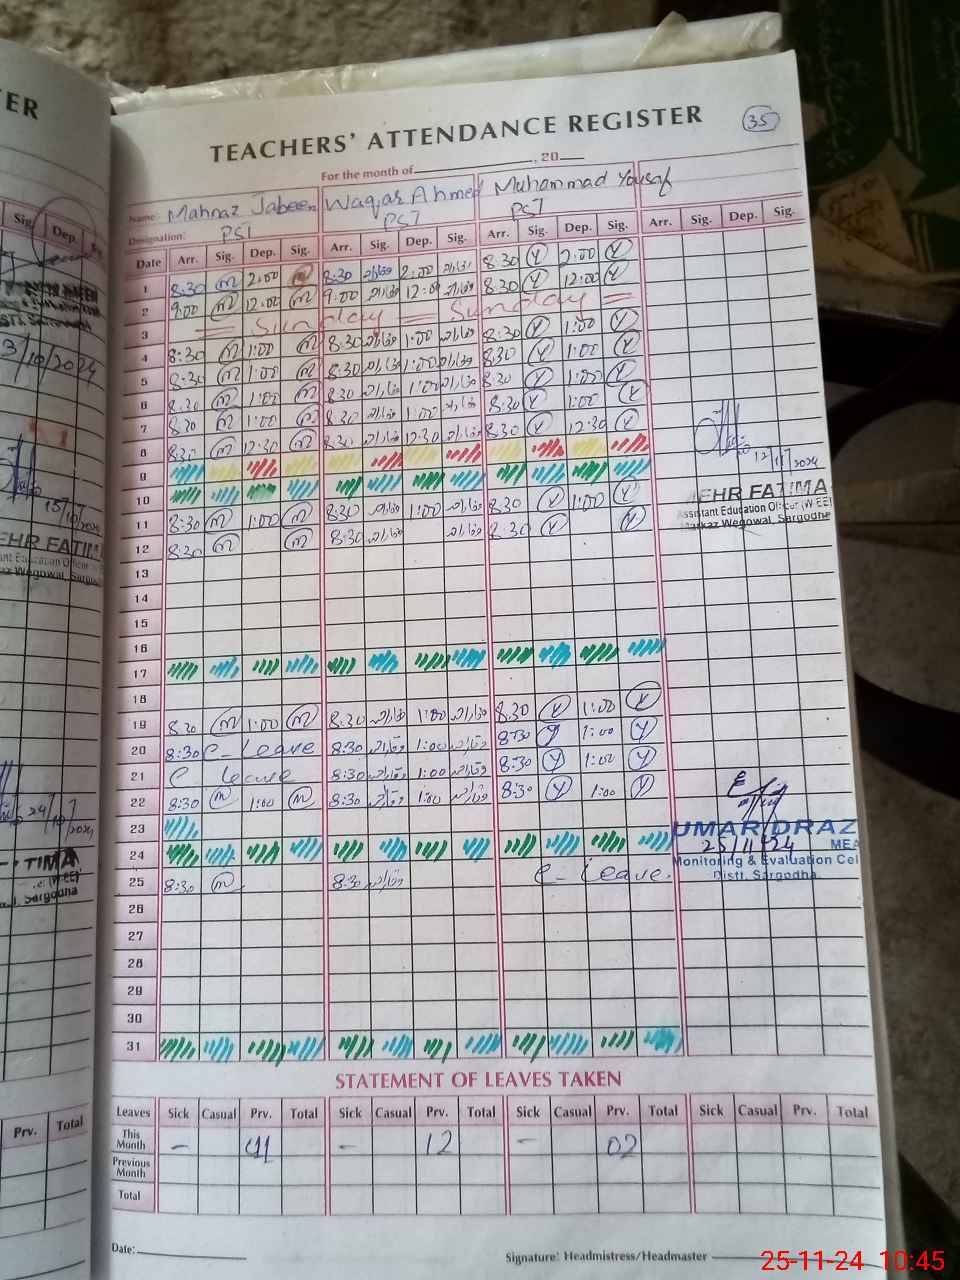 ER
TEACHERS' ATTENDANCE REGISTER
35
For the month of , 20
Name: Mahnaz Jabeen Waqar Ahmed Muhammad Yousaf
Designation: PST PST PST
Date Arr. Sig. Dep. Sig. Arr. Sig. Dep. Sig. Arr. Sig. Dep. Sig. Arr. Sig. Dep. Sig.
1 8:30 m 2:00 m 8:30 وقار 2:00 وقار 8:30 Y 2:00 Y
2 9:00 m 12:00 m 9:00 وقار 12:00 وقار 8:30 Y 12:00 Y
3 = Sunday = Sunday =
4 8:30 m 1:00 m 8:30 وقار 1:00 وقار 8:30 Y 1:00 Y
5 8:30 m 1:00 m 8:30 وقار 1:00 وقار 8:30 Y 1:00 Y
6 8:30 m 1:00 m 8:30 وقار 1:00 وقار 8:30 Y 1:00 Y
7 8:30 m 1:00 m 8:30 وقار 1:00 وقار 8:30 Y 1:00 Y
8 8:30 m 12:30 m 8:30 وقار 12:30 وقار 8:30 Y 12:30 Y
9
10
11 8:30 m 1:00 m 8:30 وقار 1:00 وقار 8:30 Y 1:00 Y
12 8:30 m m 8:30 وقار وقار 8:30 Y Y
12/11/2024
MEHR FATIMA
Assistant Education Officer (W-EE)
Markaz Wegowal, Sargodha
13
14
15
16
17
18
19 8:30 m 1:00 m 8:30 وقار 1:00 وقار 8:30 Y 1:00 Y
20 8:30 C-Leave 8:30 وقار 1:00 وقار 8:30 Y 1:00 Y
21 C Leave 8:30 وقار 1:00 وقار 8:30 Y 1:00 Y
22 8:30 m 1:00 m 8:30 وقار 1:00 وقار 8:30 Y 1:00 Y
23
24
25 8:30 m 8:30 وقار C-Leave.
UMAR DRAZ
25/11/24 MEA
Monitoring & Evaluation Cel
Distt. Sargodha.
26
27
28
29
30
31
STATEMENT OF LEAVES TAKEN
Leaves Sick Casual Prv. Total Sick Casual Prv. Total Sick Casual Prv. Total Sick Casual Prv. Total
This Month - - 12 - 02
Previous Month
Total
Date: Signature: Headmistress/Headmaster
Sig. Dep.
3/10/2024
15/10/2024
EHR FATIMA
24/10/2024
TIMA
Prv. Total
25-11-24 10:45